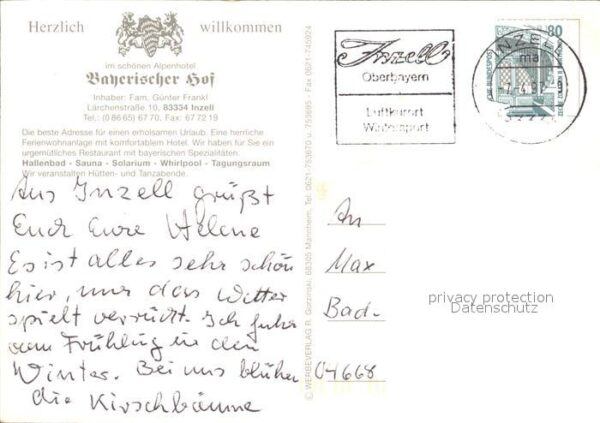 Herzlich willkommen
im schönen Alpenhotel
Bayerischer Hof
Inhaber: Fam. Günter Frankl
Lärchenstraße 10, 83334 Inzell
Tel.: (0 86 65) 67 70, Fax: 67 72 19
Die beste Adresse für einen erholsamen Urlaub. Eine herrliche
Ferienwohnanlage mit komfortablem Hotel. Wir haben für Sie ein
urgemütliches Restaurant mit bayerischen Spezialitäten.
Hallenbad - Sauna - Solarium - Whirlpool - Tagungsraum
Wir veranstalten Hütten- und Tanzabende.
Aus Inzell grüßt
Euch Eure Helene
Es ist alles sehr schön
hier, nur das Wetter
spielt verrückt. Ich fuhr
vom Frühling in den
Winter. Bei uns blühen
die Kirschbäume
© WERBEVERLAG R. Mannheim, Tel. 0621-753670 u. 753695 - Fax 0621-745924
Inzell
Oberbayern
Luftkurort
Wintersport
INZELL
ma
80
DEUTSCHE BUNDESPOST
An
Max
Bad-
04668
privacy protection
Datenschutz